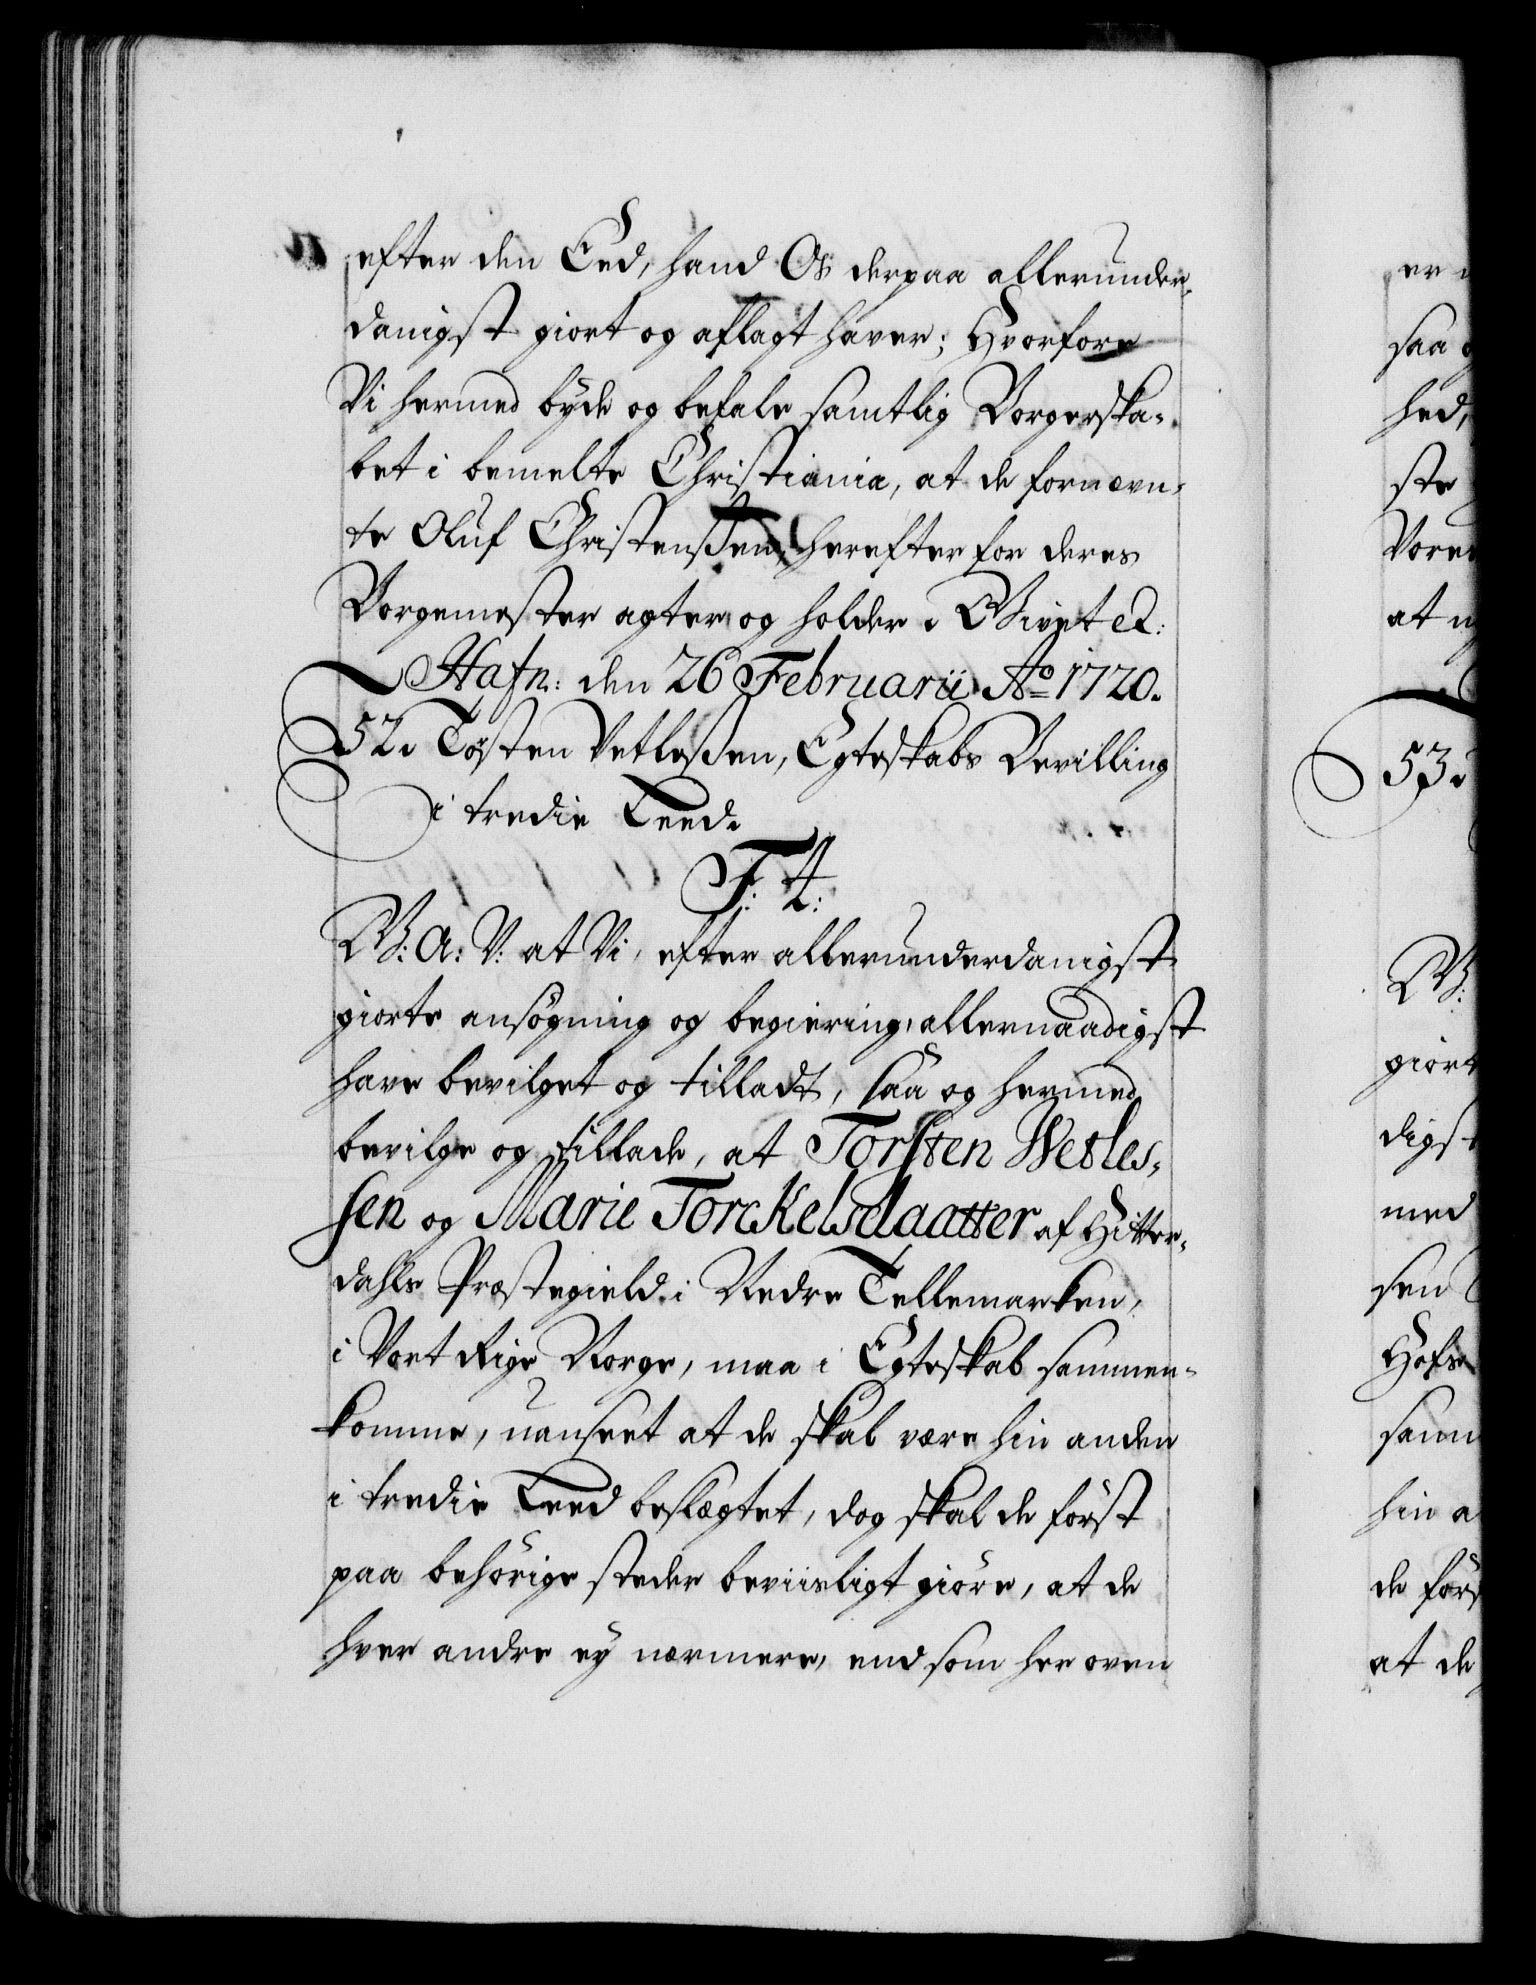 efter den Eed, hand Os derpaa allerunder,
danigst giort og aflagt haver; Hvorfore
Vi hermed byde og befale samtlig Borgerska,
bet i bemelte Christiania, at de fornævn,
te Oluf Christenssen, herefter for deres
Borgemester agter og holder. Givet &:
Hafn: den 26 Februarii Ao 1720.
52. Tosten Vetlessen, Egteskabs Bevilling
i tredie Leed.
F: 4:
G: A: V: at Vi, efter allerunderdanigst
giorte ansøgning og begiering, allernaadigst
have bevilget og tilladt, saa og hermed
bevilge og tillade, at Torsten Wetles,
sen og Marie Torckelsdaatter af Hitter,
dahls Præstegield i Nedre Tellemarken,
i Vort Rige Norge, maa i Egteskab sammen,
komme, uanseet at de skal være hin anden
i tredie Leed beslægtet, dog skal de først
paa behørige steder beviisligt giøre, at de
hver andre ey nærmere, end som her oven
er
saa
hed,
ste
Vore
at
53.
G:
giort
digst
med
sen
Hofs
samm
hin a
de førs
at de